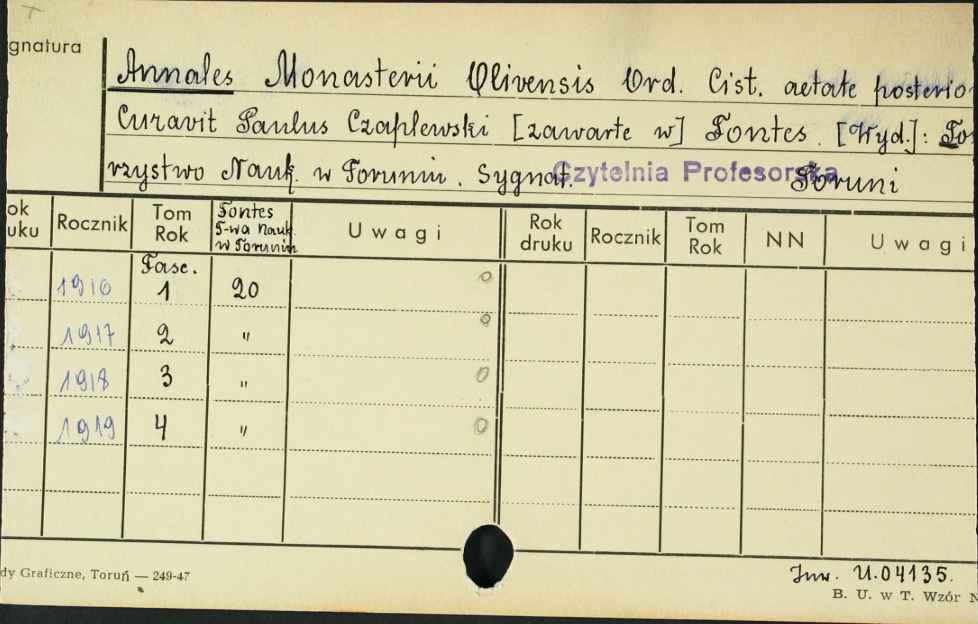 gnatura
Annales Monasterii Olivensis Ord. Cist. aetate posterio
Curavit Paulus Czaplewski [zawarte w] Fontes. [Wyd.]: To
rzystwo Nauk. w Toruniu. Sygnat. Toruni
Czytelnia Profesorska
ok uku Rocznik Tom Rok Fontes T-wa Nauk. w Toruniu Uwagi Rok druku Rocznik Tom Rok NN Uwagi
Fasc.
1916 1 20
1917 2 "
1918 3 "
1919 4 "
dy Graficzne, Toruń — 249-47
Inw. U.04135.
B. U. w T. Wzór N